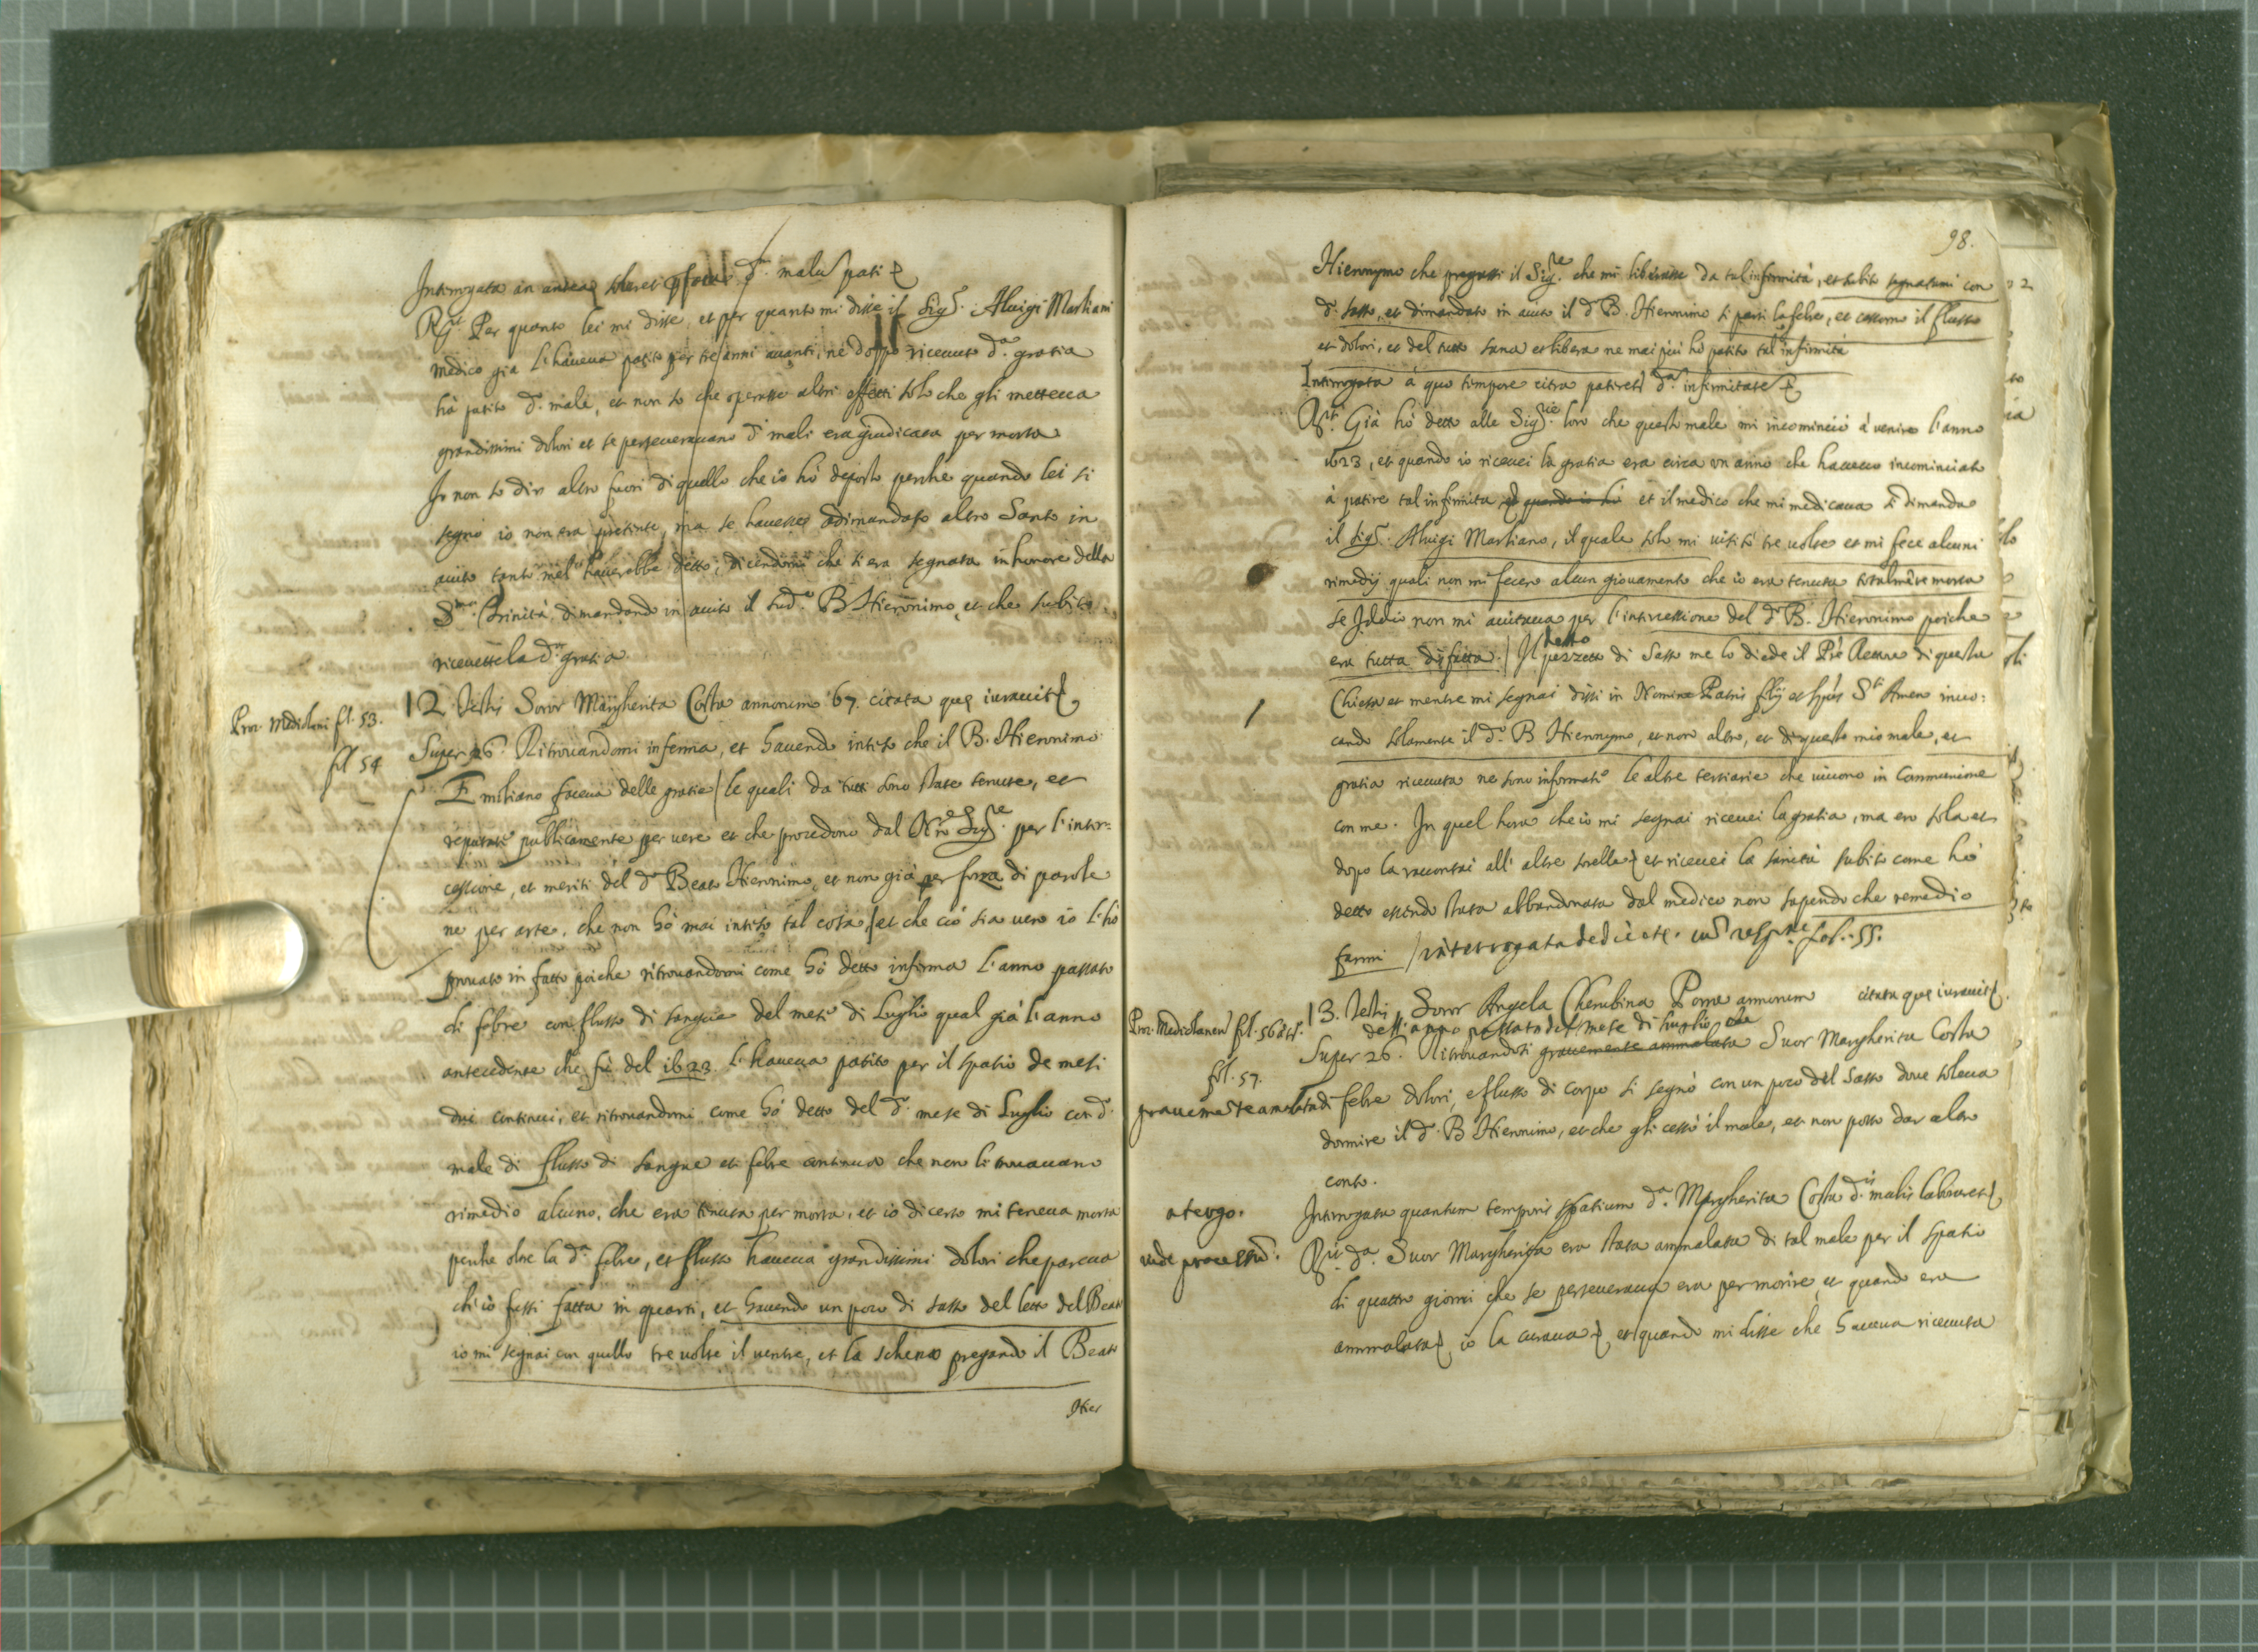 Interrogata an antea soleret d.m malu pati
R.it Per quanto lei mi disse, et per quanto mi disse il Sig.r Aluigi Marliani
medico già l'haueua patito per tre anni auanti, ne doppo riceuuto d.a gratia
hà patito d.o male, et non so che operasse altri effetti solo che gli metteua
grandissimi dolori et se perseuerauano d.i mali era giudicata per morta
Io non so dir altro fuori di quello che io hò deposto perche quando lei si
segnò io non era presente, ma se hauesse adimandato altro Santo in
aiuto tanto mel hauerebbe detto, dicendomi che si era segnata in honore della
S.ma Trinità dimandando in aiuto il sud.o B Hieronimo, et che subito
riceuette la d.a gratia
Proc. Mediolani fl. 53.
12 Testis Soror Margherita Costa annorum 67. citata que iurauit
fl 54
Super 26. Ritrouandomi inferma, et hauendo inteso che il B. Hieronimo
Emiliano faceua delle gratie / le quali da tutti sono state tenute, et
reputate publicamente per vere et che procedono dal N.ro Sig.re per l'inter:
cessione, et meriti del d.o Beato Hieronimo, et non già per forza di parole
ne per arte, che non hò mai inteso tal cosa, / et che ciò sia vero io l'hò
prouato in fatto poiche ritrouandomi come hò detto inferma l'anno passato
di febre con flusso di sangue del mese di Luglio qual già l'anno
antecedente che fù del 1623. l'haueua patito per il spatio de mesi
dui continui, et ritrouandomi come hò detto del d.o mese di Luglio con d.o
male di flusso di sangue et febre continua che non si trouauano
rimedio alcuno, che era tenuta per morta, et io di certo mi teneua morta
perche oltre la d.a febre, et flusso haueua grandissimi dolori che pareua
ch'io fussi fatta in quarti, et hauendo un poco di sasso del letto del Beato
io mi segnai con quello tre volte il ventre, et la schena pregando il Beato
Hier
98.
Hieronymo che pregassi il Sig.re che mi liberasse da tal infermità, et subito segnatami con
d.o sasso, et dimandato in aiuto il d.o B. Hieronimo si partì la febre, et cessorno il flusso
et dolori, et del tutto sana et libera ne mai più hò patito tal infirmità
Interrogata à quo tempore citra pateret d.a infirmitate
R.it Già hò detto alle Sig.rie loro che questo male mi incominciò à venire l'anno
1623, et quando io riceuei la gratia era circa un anno che haueuo incominciato
à patire tal infirmita et quando io hò et il medico che mi medicaua si dimanda
il Sig.r Aluigi Marliano, il quale solo mi visitò tre volte et mi fece alcuni
rimedij quali non mi fecero alcun giouamento che io era tenuta totalmēte morta
se Iddio non mi aiutaua per l'intercessione del d.o B. Hieronimo poiche
era tutta disfatta. / Il detto pezzetto di Sasso me lo diede il Prē Rettore di questa
Chiesa et mentre mi segnai dissi in Nomine Patris filij et Spūs S.ti Amen inuo:
cando solamente il d.o B Hieronymo, et non altro, et di questo mio male, et
gratia riceuuta ne sono informate le altre tertiarie che viuono in Communione
con me. In quel hora che io mi segnai riceuei la gratia, ma ero sola et
dopo la raccontai all'altre sorelle, et riceuei la sanità subito come hò
detto essendo stata abbandonata dal medico non sapendo che remedio
farmi / interrogata de die etc. fol. 55.
Proc. Mediolanen fl. 56 et s.
13. Testis Soror Angela Cherubina Porra annorum citata que iurauit
dell'anno passato del mese di Luglio
fol. 57.
Super 26. Ritrouandosi grauemente ammalata Suor Margherita Costa
grauemēte amalata di febre dolori, e flusso di corpo si segnò con un poco del Sasso doue soleua
dormire il d.o B Hieronimo, et che gli cessò il male, et non posso dar altro
conto.
a tergo.
Interrogata quantum temporis spatium d.a Margherita Costa d.is malis laboraret
vide processū.
R.it d.a Suor Margherita era stata ammalata di tal male per il spatio
di quattro giorni che se perseueraua era per morire, et quando era
ammalata, io la curaua, et quando mi disse che haueua riceuuta